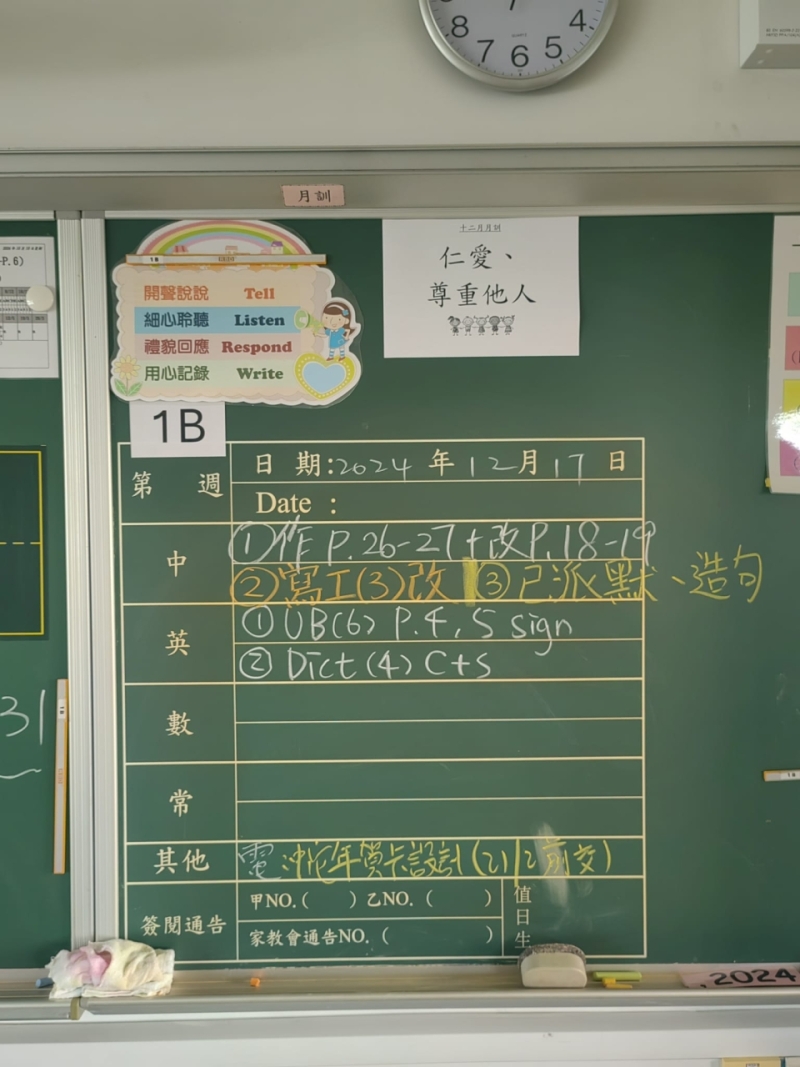 8 7 6 5 4
月訓
十二月月訓
仁愛、
尊重他人
1B
開聲說說 Tell
細心聆聽 Listen
禮貌回應 Respond
用心記錄 Write
1B
第 週
日 期:2024 年 12月 17 日
Date :
中
①作 P.26-27+改P.18-19
②寫工(3)改 ③已派默、造句
英
① UB(6) P.4, 5 sign
② Dict (4) C+S
數
常
其他
電 年賀卡設計(2/12前交)
簽閱通告
甲NO.( ) 乙NO. ( )
家教會通告NO. ( )
值日生
31
P. 6)
1B
.2024